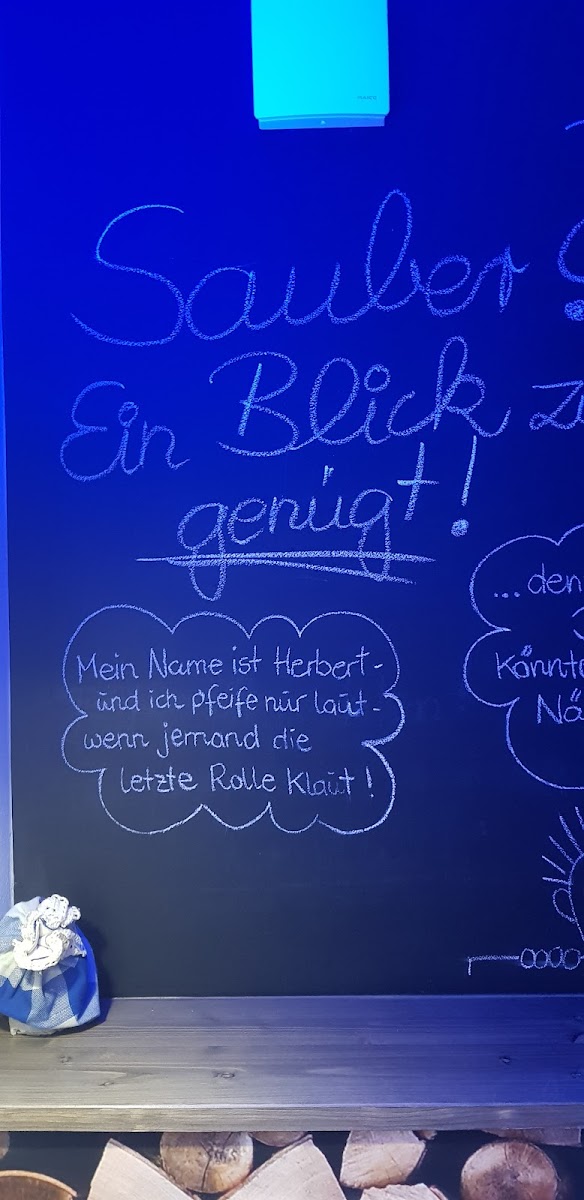 Sauber
Ein Blick
genügt!
Mein Name ist Herbert-
und ich pfeife nur laut-
wenn jemand die
letzte Rolle Klaut!
... den